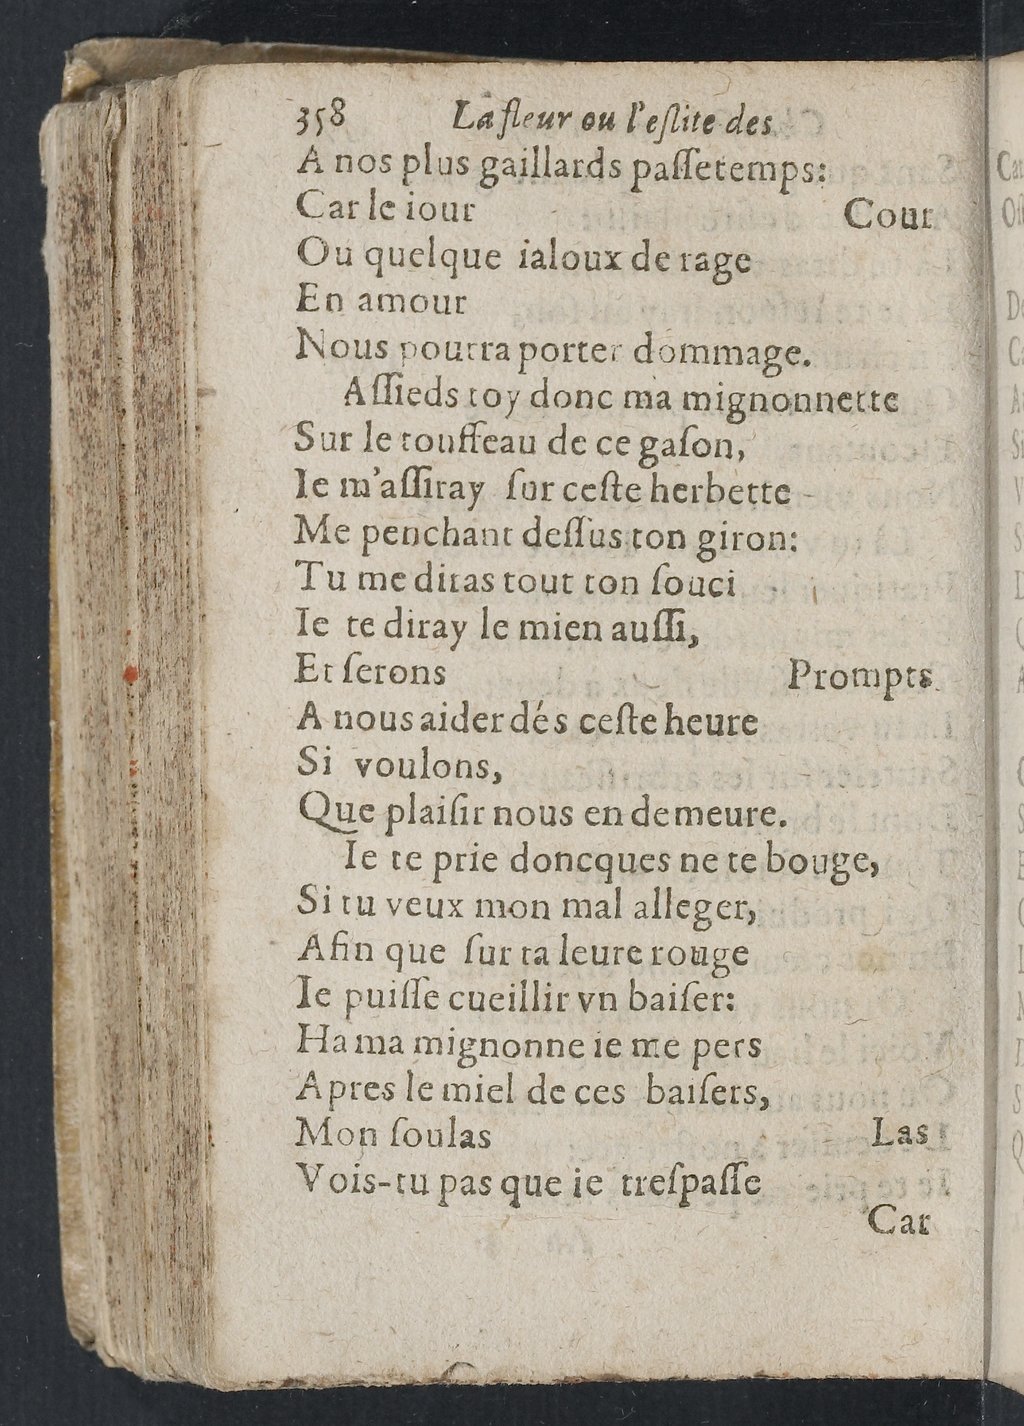 358 La fleur ou l'eſlite des
A nos plus gaillards paſſetemps:
Car le iour Cour
Ou quelque ialoux de rage
En amour
Nous pourra porter dommage.
Aſſieds toy donc ma mignonnette
Sur le touffeau de ce gaſon,
Ie m'aſſiray ſur ceſte herbette
Me penchant deſſus ton giron:
Tu me diras tout ton ſouci
Ie te diray le mien auſſi,
Et ſerons Prompts
A nous aider dés ceſte heure
Si voulons,
Que plaiſir nous en demeure.
Ie te prie doncques ne te bouge,
Si tu veux mon mal alleger,
Afin que ſur ta leure rouge
Ie puiſſe cueillir vn baiſer:
Ha ma mignonne ie me pers
Apres le miel de ces baiſers,
Mon ſoulas Las
Vois-tu pas que ie treſpaſſe
Car